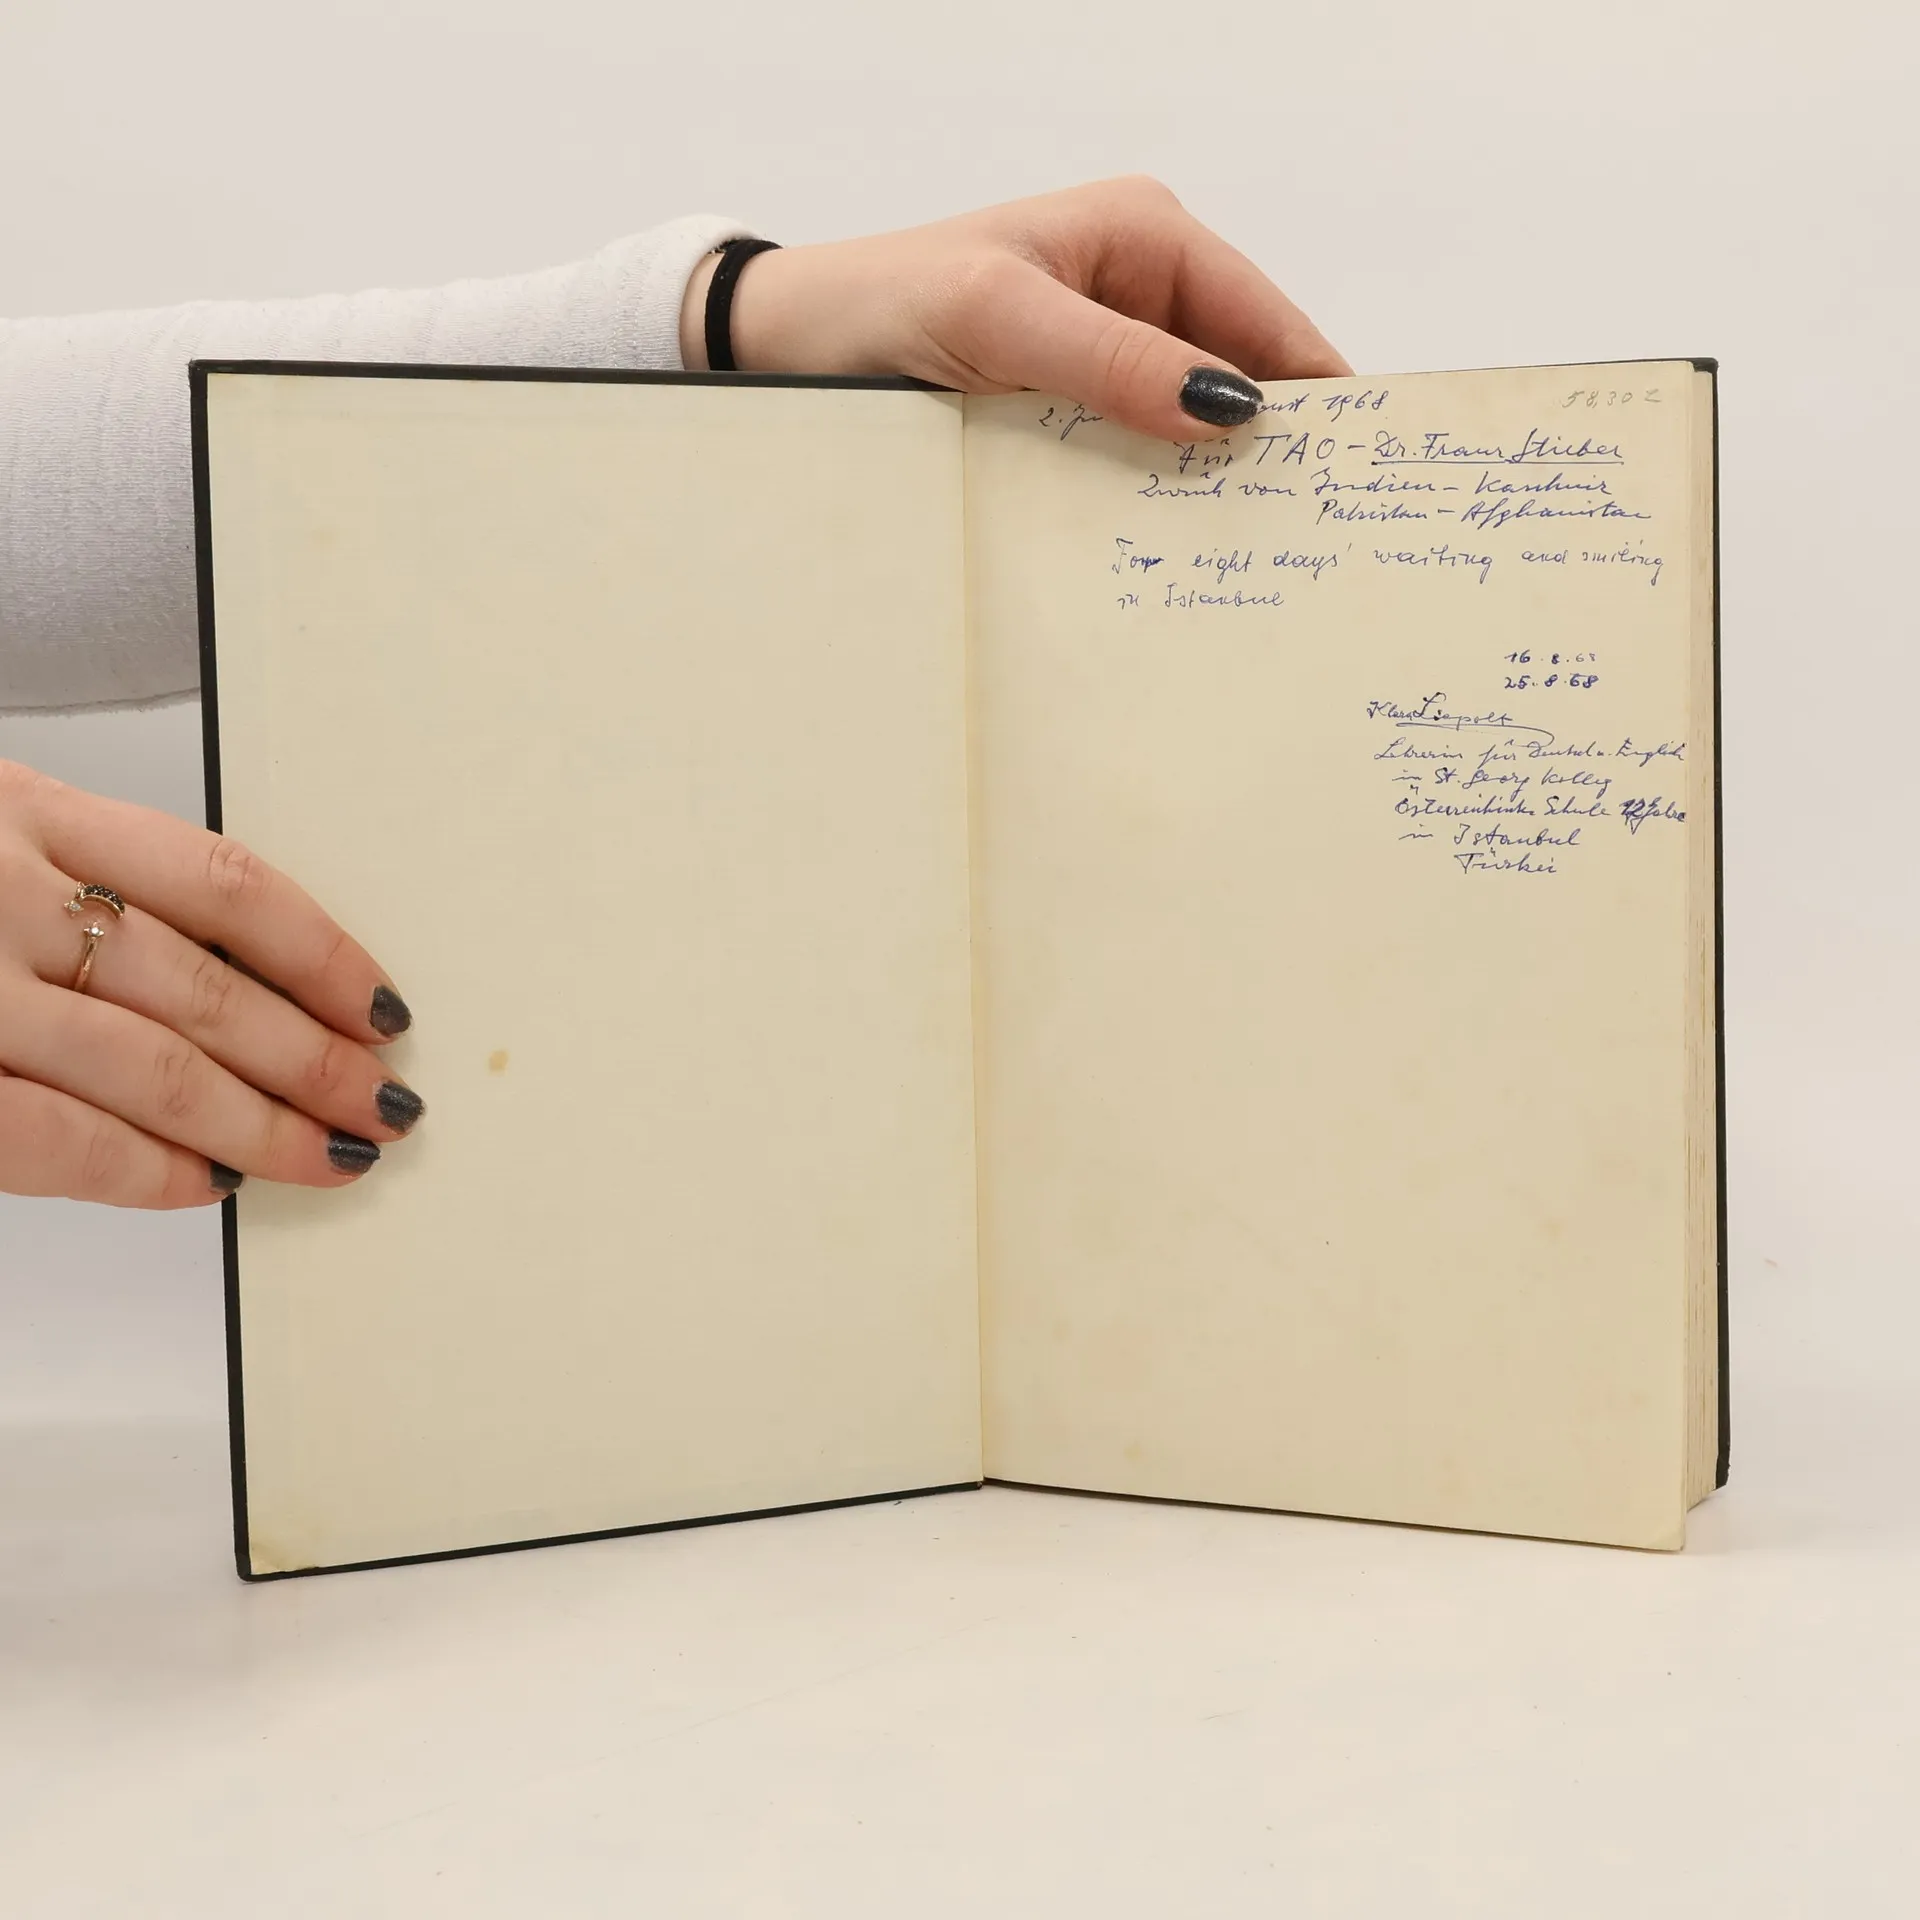 58,30
2. Ju ust 1968
Für TAO - Dr. Franz Stieber
Zurück von Indien - Kaschmir
Pakistan - Afghanistan
For eight days' waiting and smiling
in Istanbul
16.8.68
25.8.68
Klara Liepolt
Lehrerin für Deutsch u. Englisch
in St. Georg Kolleg
Österreichische Schule 12 Jahre
in Istanbul
Türkei